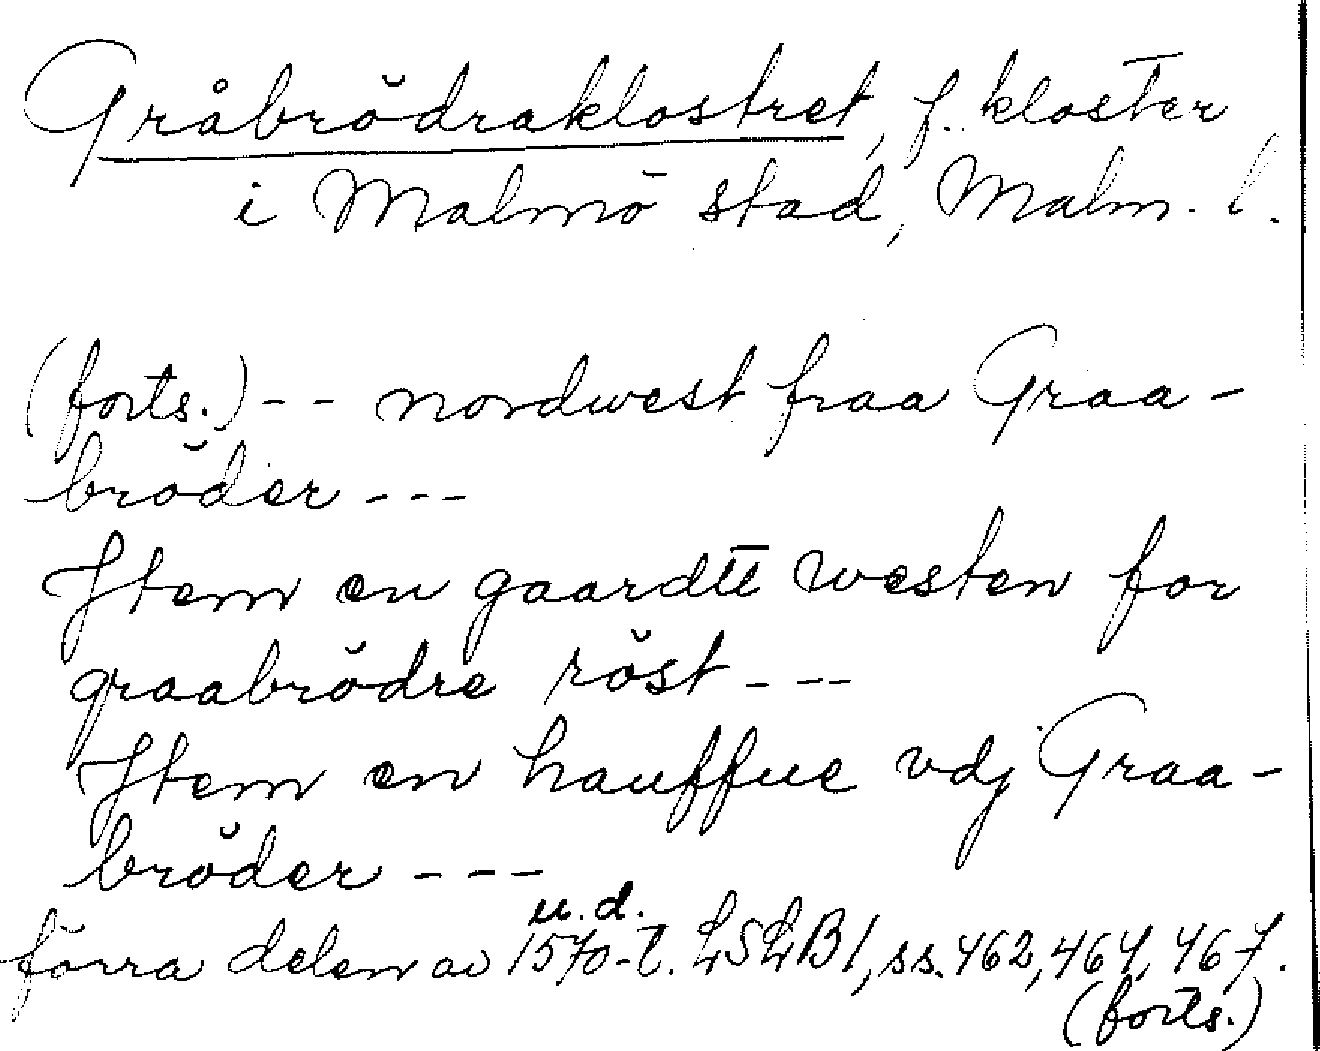 Gråbrödraklostret, f. kloster
i Malmö stad, Malm. l.
(forts.) -- nordwest fraa Graa-
bröder ---
Item en gaardtt westen for
graabrödre röst ---
Item en hauffue vdj Graa-
bröder ---
u.d.
förra delen av 1570-t. LSLB1, ss. 462, 464, 467.
(forts.)